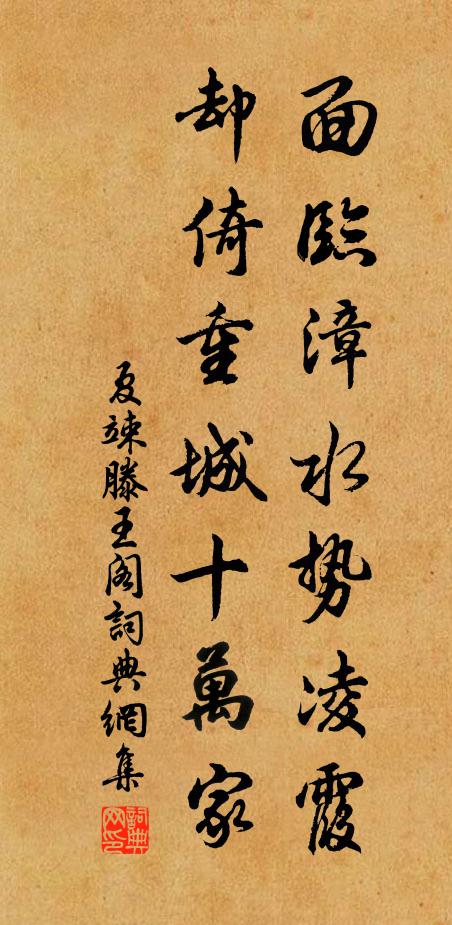 面臨漳水勢凌霞
却倚重城十萬家
夏竦滕王阁詞典網集
詞典
网印